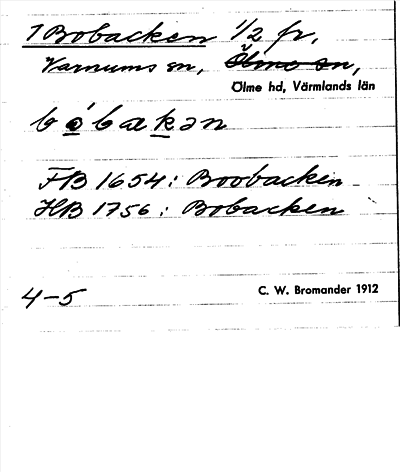 1 Bobacken 1/2 fr,
Varnums sn, Ölme sn,
Ölme hd, Värmlands län
bóbakən
FB 1654: Boobacken
HB 1756: Bobacken
4-5
C. W. Bromander 1912